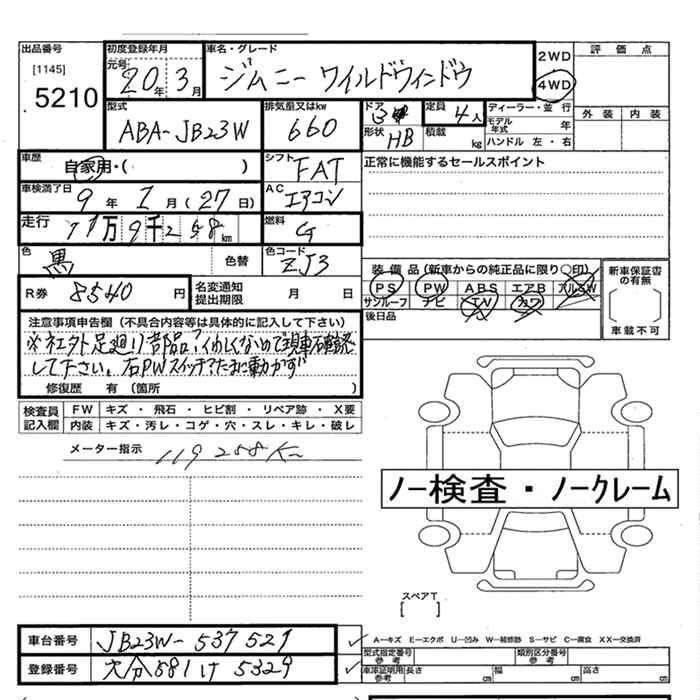 出品番号
[1145]
5210
初度登録年月
元号 20年 3月
車名・グレード
ジムニー ワイルドウィンド
2WD
4WD
評価点
外装 内装
型式
ABA-JB23W
排気量又はkw
660
ドア 3
形状 HB
定員 4人
積載 kg
ディーラー・並行
モデル年式 年
ハンドル 左・右
車歴
自家用・( )
シフト
FAT
正常に機能するセールスポイント
車検満了日
9年 1月(27日)
AC
エアコン
走行
11万9千258km
燃料
G
色
黒
色替
色コード
ZJ3
装備品(新車からの純正品に限り○印)
PS PW ABS エアB アルミW
サンルーフ ナビ TV カワ
後日品
新車保証書の有無
[ ]
車載不可
R券 8540円
名変通知
提出期限
月 日
注意事項申告欄(不具合内容等は具体的に記入して下さい)
して下さい。右PWスイッチたまに動かず
修復歴 有(箇所
検査員
記入欄
FW キズ・飛石・ヒビ割・リペア跡・X要
内装 キズ・汚レ・コゲ・穴・スレ・キレ・破レ
メーター指示 119258K
ノー検査・ノークレーム
スペアT
[ ]
A-キズ E-エクボ U-凹み W-補修跡 S-サビ C-腐食 XX-交換済
車台番号 JB23W-537521
登録番号 大分581け5329
型式指定番号
参考
類別区分番号
参考
車庫証明用
参考
長さ cm 幅 cm 高さ cm